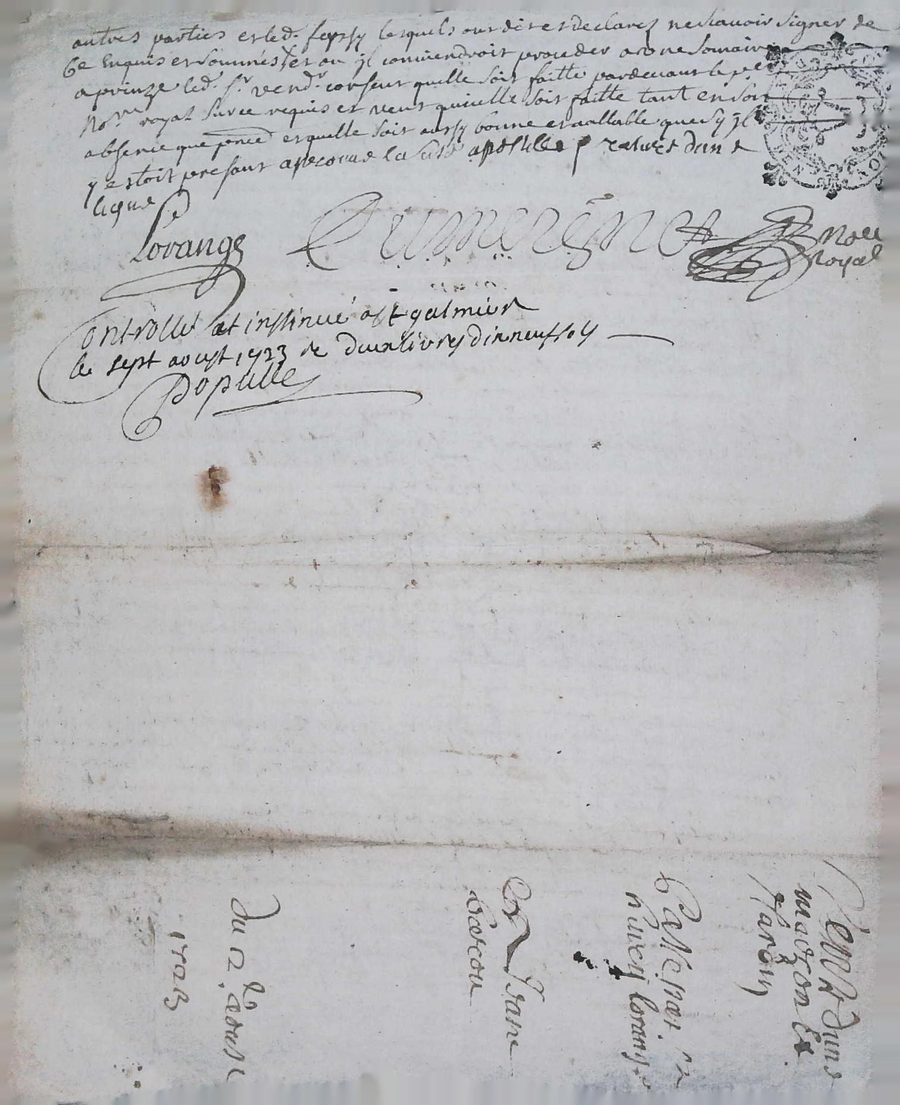 autres parties et led. fessy lesquels ont dit et declaré ne scavoir signer de
ce enquis et sommés et ou jl conviendroit proceder a
a prinze led. sr. vendr. consent quelle soit faitte pardevant le
No.re royal sur ce requis et veut quicelle soit faitte tant en son
absence que et quelle soit aussy bonne et vallable que sy jl
y estoit present approuvé la apostille rature dune
ligne
Lorange
Dumerignat
No.re
royal
Controllé et insinué a St galmier
le sept aoust 1723 Re deux livres dix neuf sols
Populle
Vente dune
maizon et
Jardin
passé par
lorange
a Jean
du 2 aoust
1723